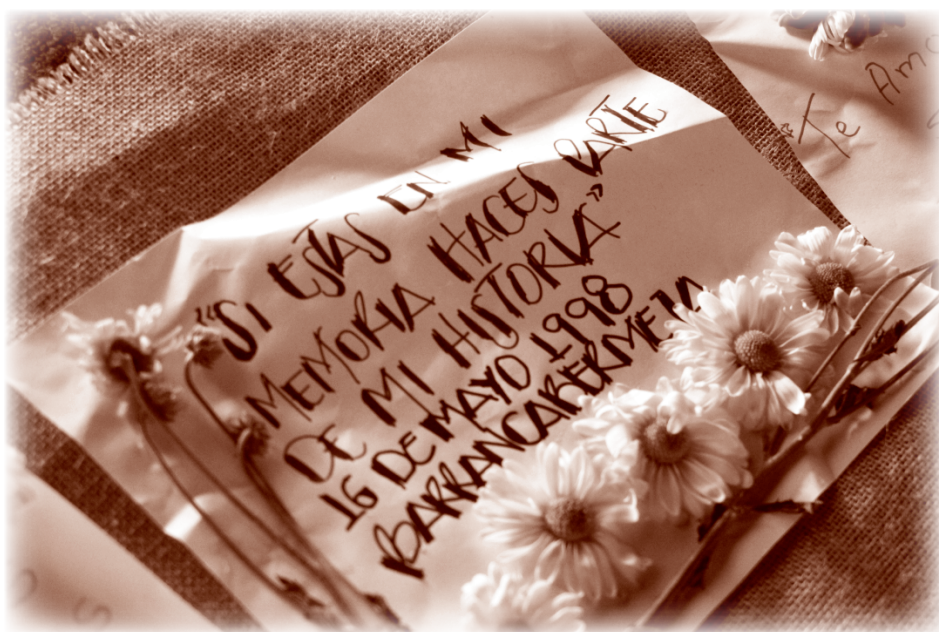 "SI ESTÁS EN MI
MEMORIA HACES PARTE
DE MI HISTORIA"
16 DE MAYO 1998
BARRANCABERMEJA
Te Amo